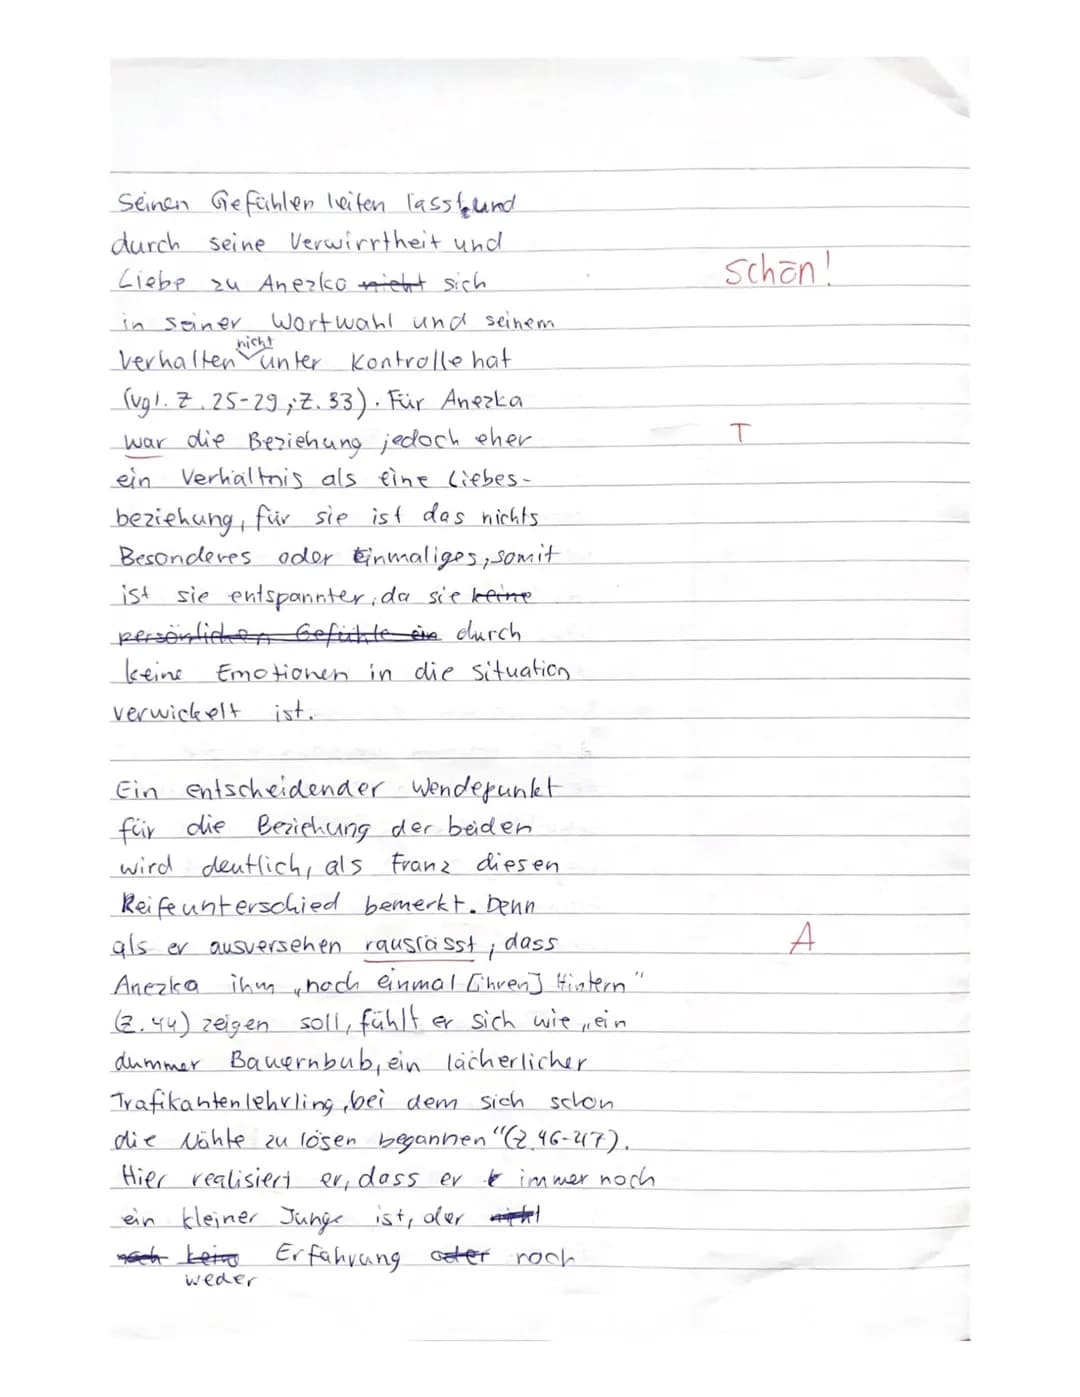 Seinen Gefühlen leiten lässt und
durch seine Verwirrtheit und
Liebe zu Anezka nicht sich
Schön!
in seiner Wortwahl und seinem
nicht
Verhalten unter Kontrolle hat
(vgl. Z. 25-29; Z. 33). Für Anezka
war die Beziehung jedoch eher
T
ein Verhältnis als eine Liebes-
beziehung, für sie ist das nichts
Besonderes oder Einmaliges, somit
ist sie entspannter, da sie keine
persönlichen Gefühle ein durch
keine Emotionen in die Situation
verwickelt ist.
Ein entscheidender Wendepunkt
für die Beziehung der beiden
wird deutlich, als Franz diesen
Reifeunterschied bemerkt. Denn
als er ausversehen rauslässt, dass
A
Anezka ihm „noch einmal [ihren] Hintern"
(Z. 44) zeigen soll, fühlt er sich wie „ein
dummer Bauernbub, ein lächerlicher
Trafikantenlehrling, bei dem sich schon
die Nähte zu lösen begannen" (Z. 46-47).
Hier realisiert er, dass er immer noch
ein kleiner Junge ist, der nicht
noch keine Erfahrung oder noch
weder